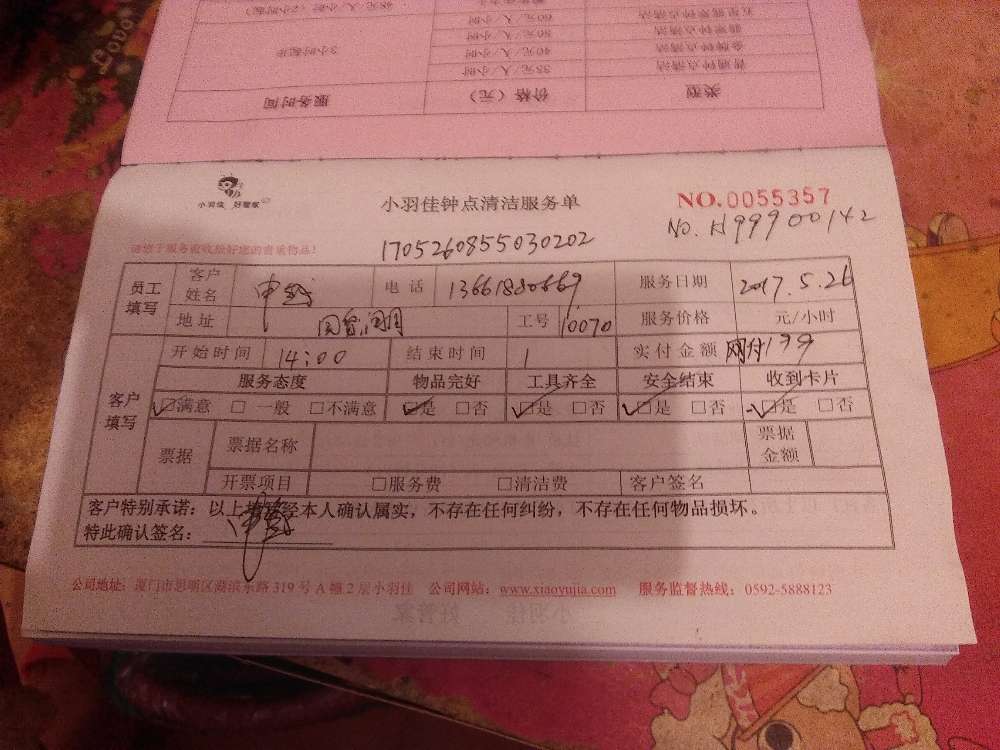 类型 价格（元） 服务时间
普通钟点清洁 35元/人/小时 3小时起步
金牌钟点清洁 40元/人/小时
50元/人/小时
60元/人/小时
48元/人/小时（2小时起）
小羽佳 好管家
小羽佳钟点清洁服务单
NO.0055357
No. H99900142
请您于服务前收捡好您的贵重物品！
1705260855030202
员工填写 客户姓名 申 电话 13661880669 服务日期 2017.5.26
地址 国贸润园 工号 10070 服务价格 元/小时
客户填写 开始时间 14:00 结束时间 实付金额 网付199
服务态度 物品完好 工具齐全 安全结束 收到卡片
☑满意 □一般 □不满意 ☑是 □否 ☑是 □否 ☑是 □否 ☑是 □否
票据 票据名称 票据金额
开票项目 □服务费 □清洁费 客户签名
客户特别承诺：以上填写经本人确认属实，不存在任何纠纷，不存在任何物品损坏。
特此确认签名：
公司地址：厦门市思明区湖滨东路319号A幢2层小羽佳 公司网站：www.xiaoyujia.com 服务监督热线：0592-5888123